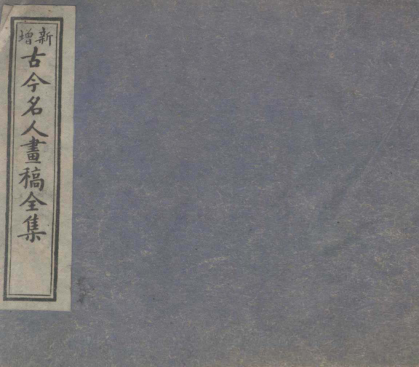 新增古今名人畫稿全集